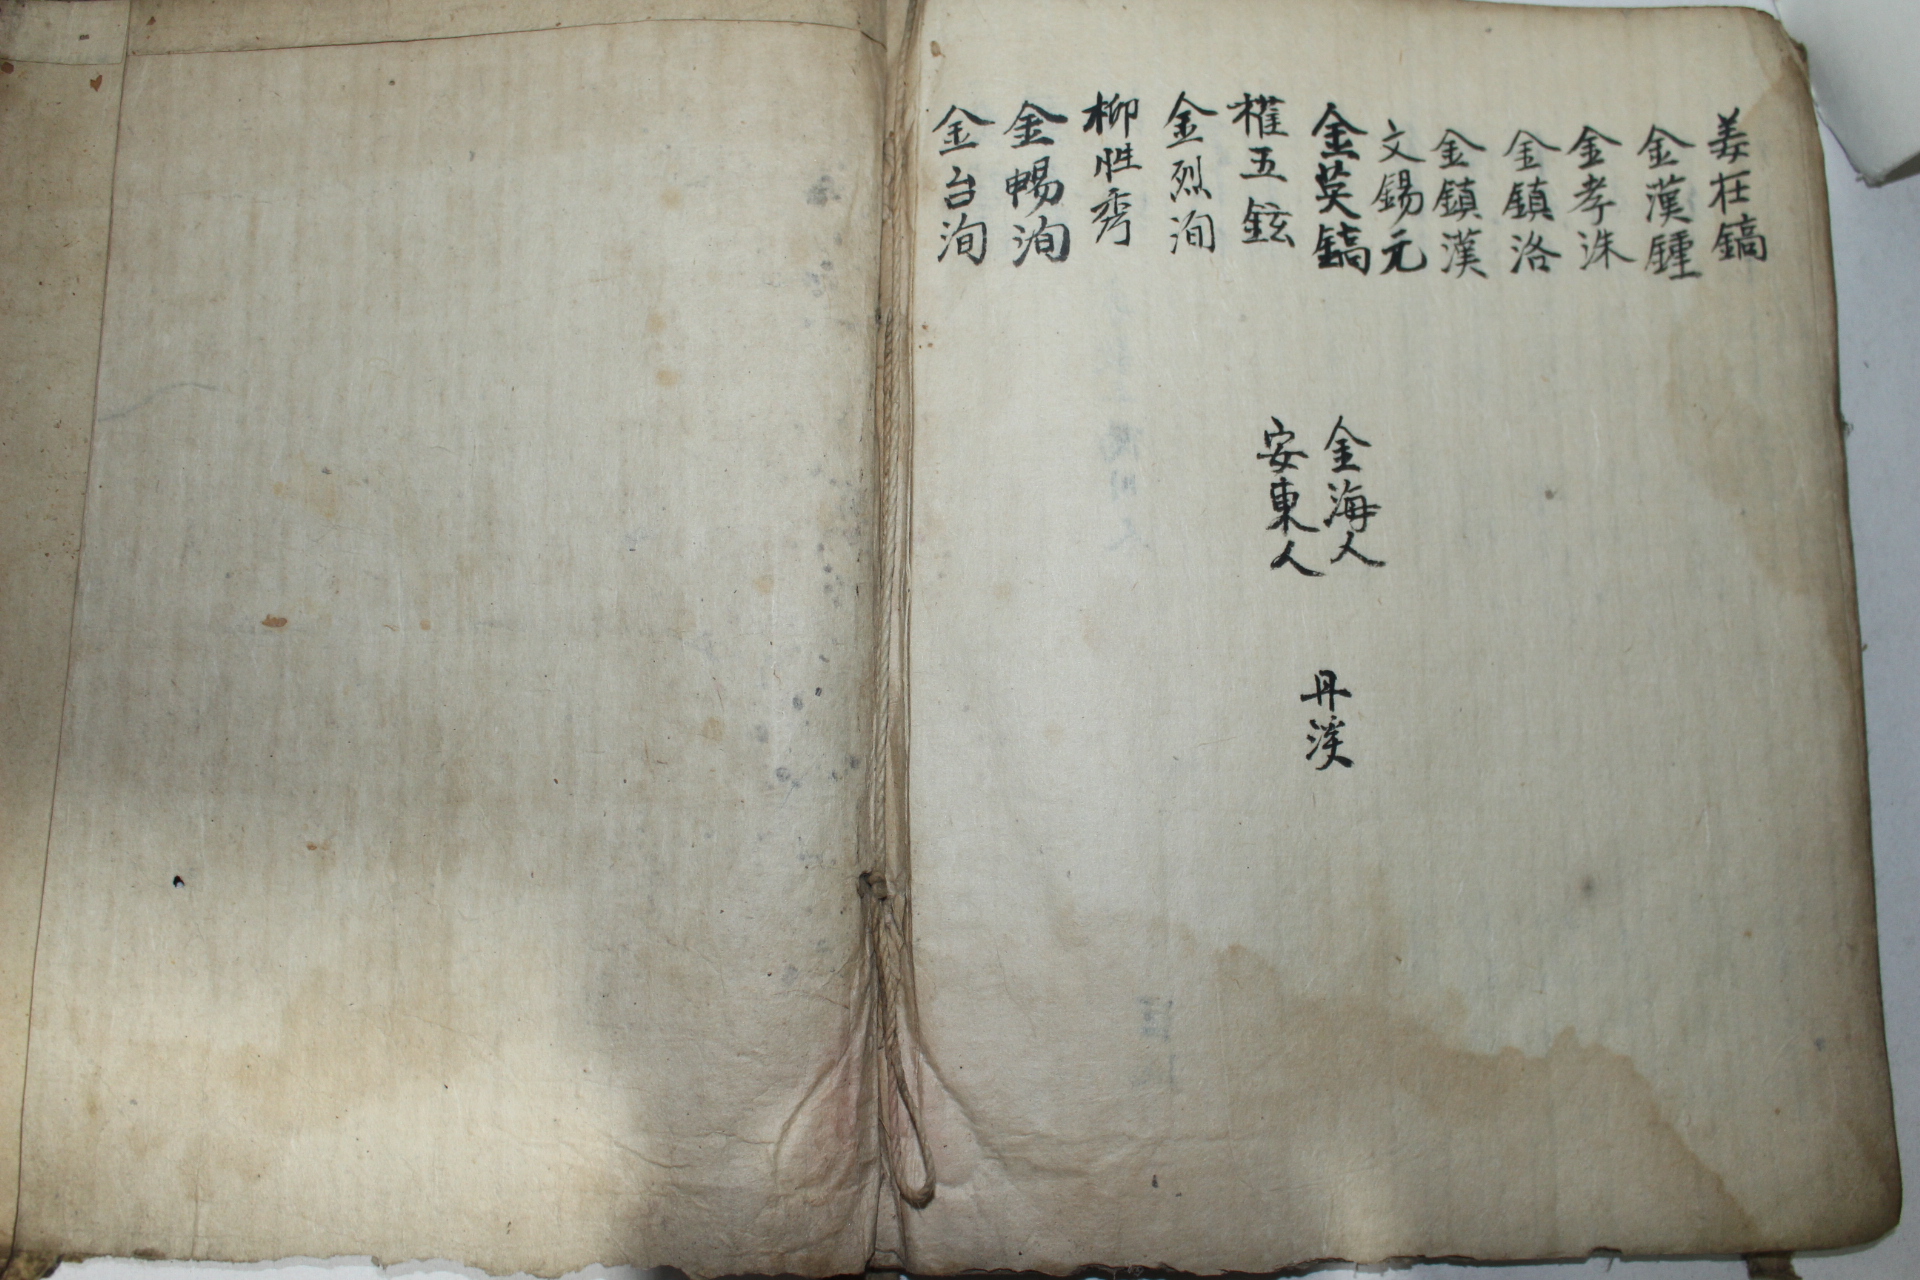 姜在鎬
金漢鍾
金孝洙
金鎮洛
金鎮漢
文錫元
金英鎬
權五鉉
金烈洵
柳性秀
金暢洵
金台洵
金海人
安東人
丹溪